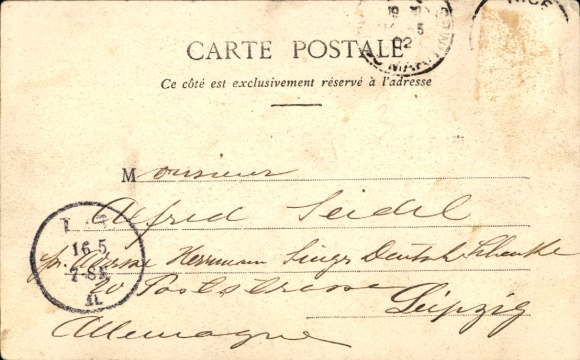 CARTE POSTALE
Ce côté est exclusivement réservé à l'adresse
NICE
19
5
02
Monsieur
Alfred Seidel
pr. Adresse Herrmann Singer Deutsch Schenke
20 Poststrasse
Leipzig
Allemagne
16 5
7-8